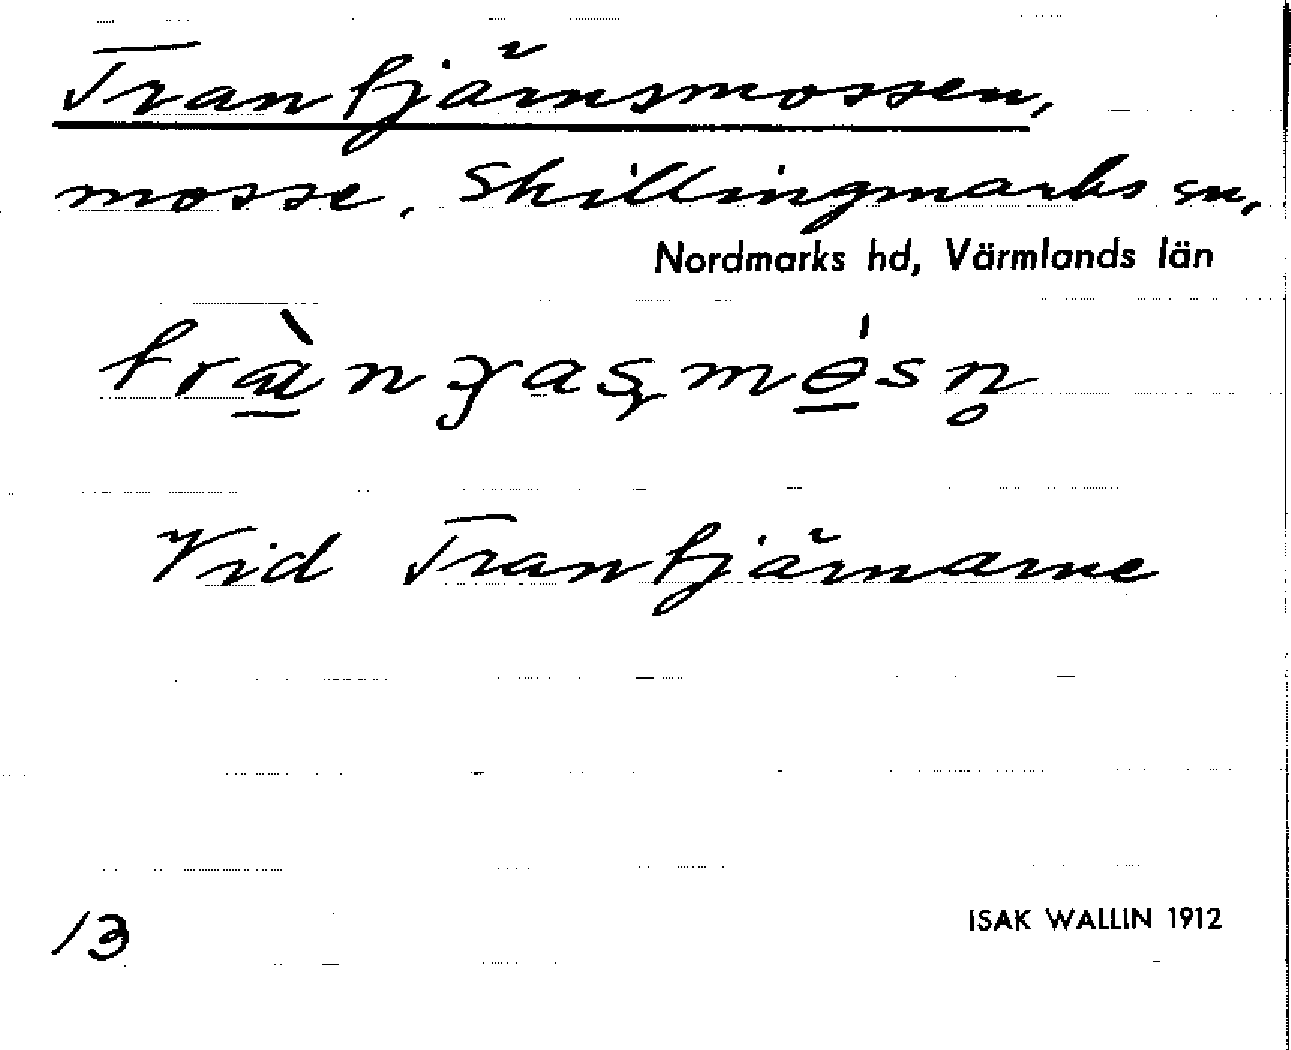 Trantjärnsmossen,
mosse, Skillingmarks sn,
Nordmarks hd, Värmlands län
Vid Trantjärnarne
13
ISAK WALLIN 1912